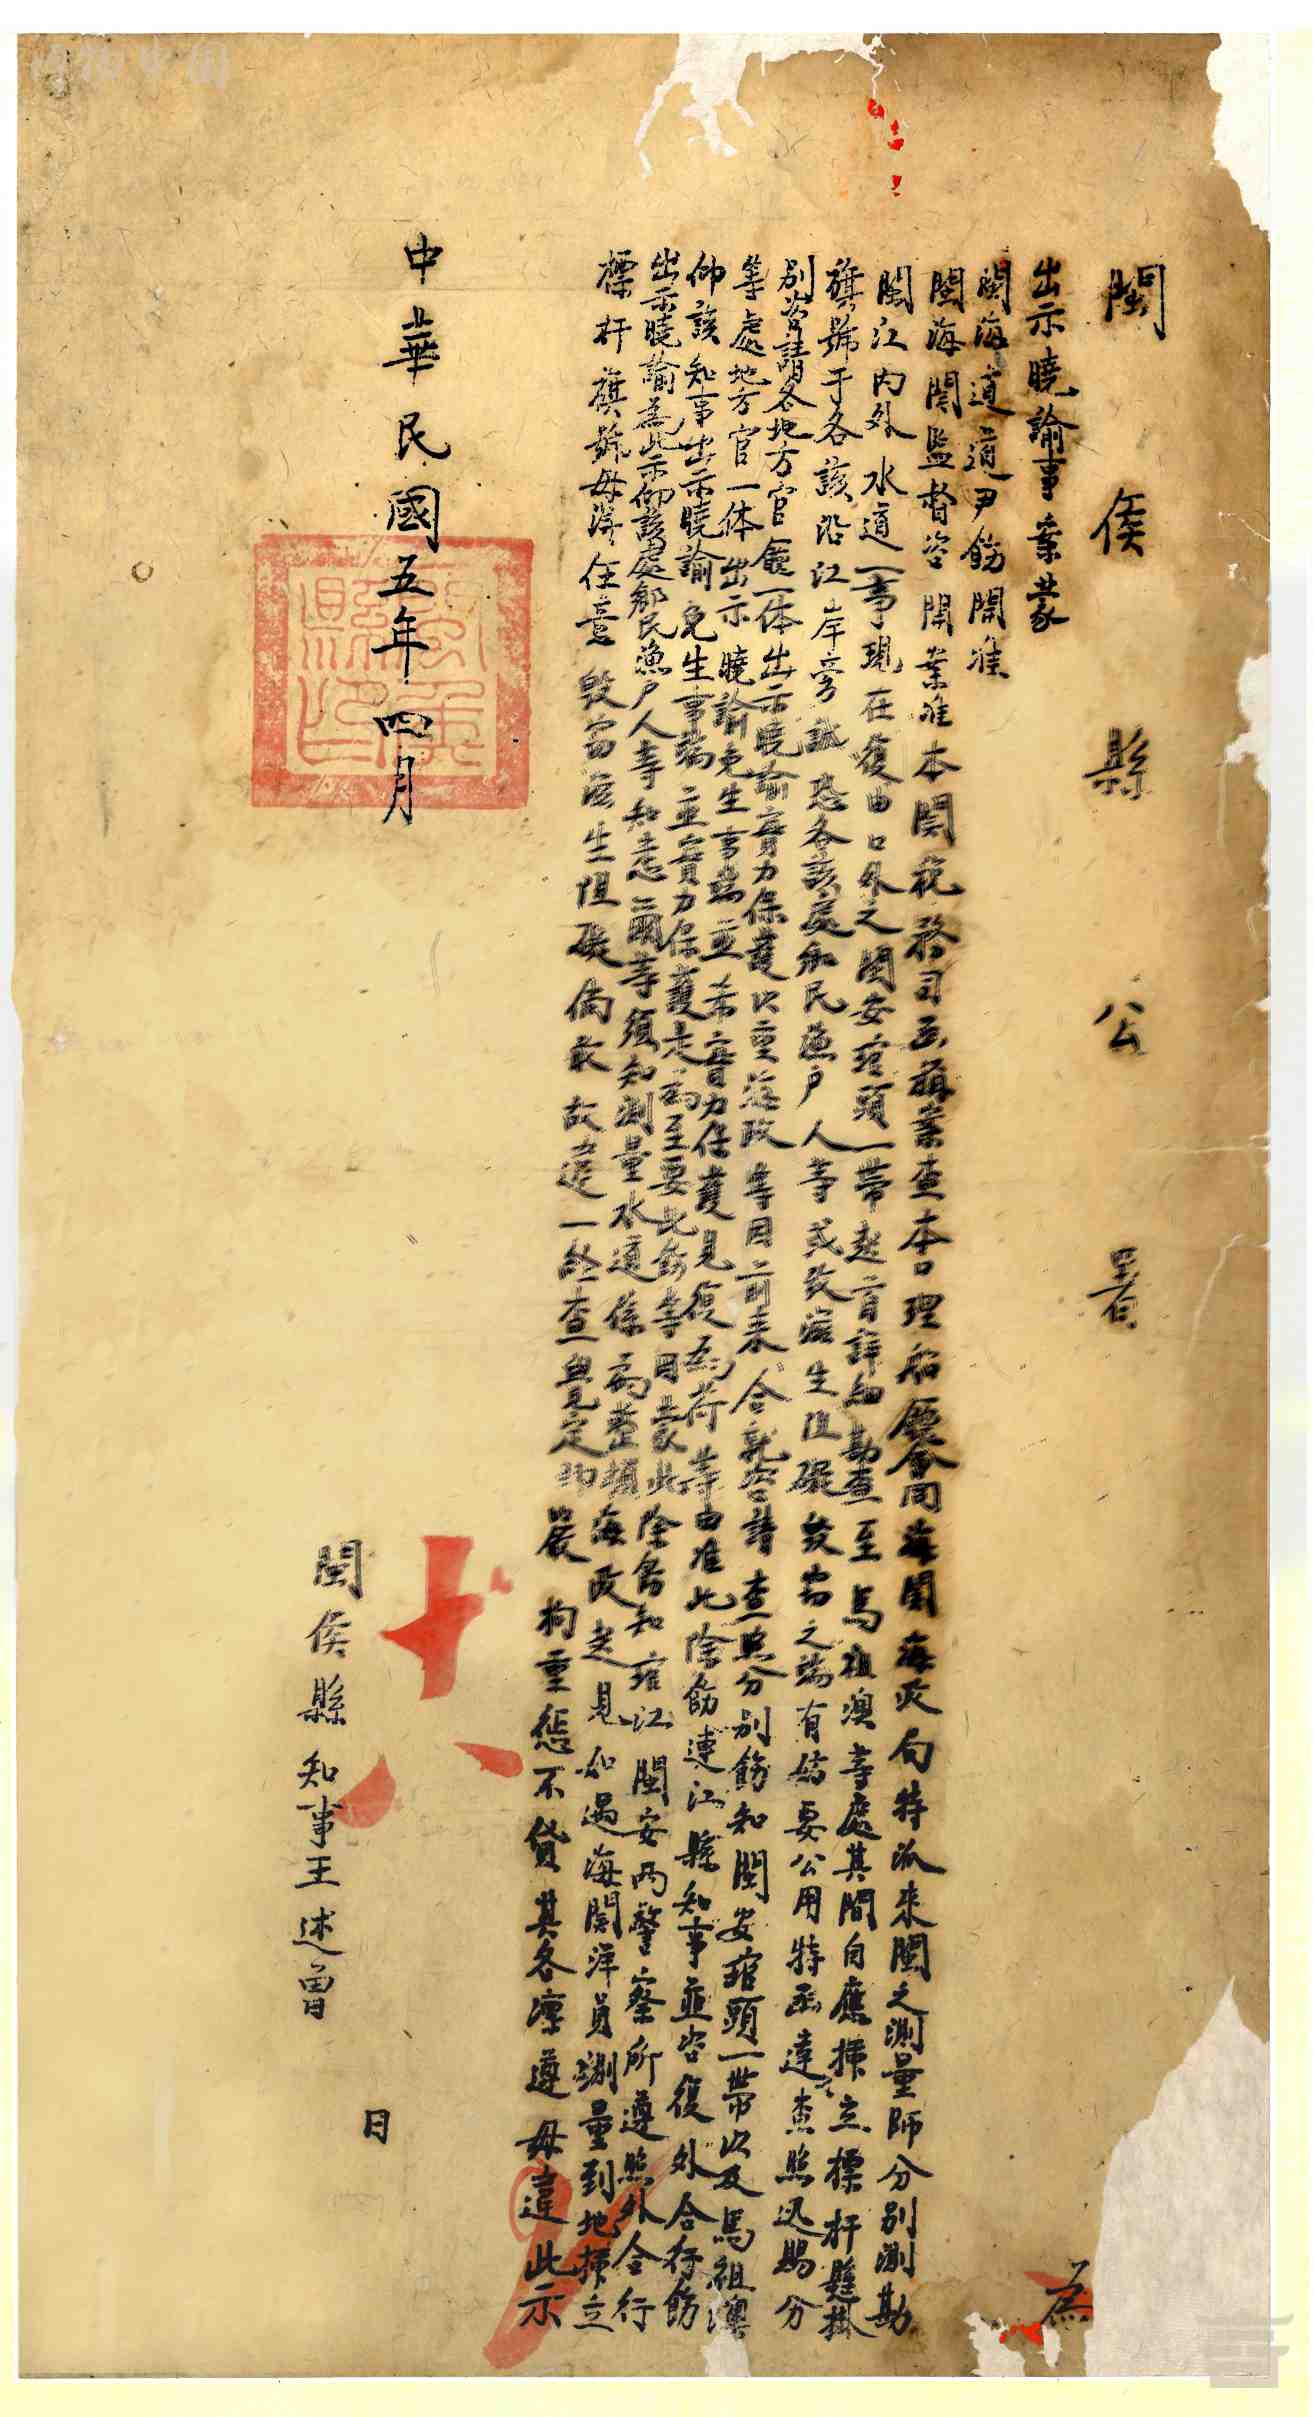 閩侯縣公署　為
出示曉諭事案蒙
閩海道道尹飭開准
閩海關監督咨開案准本關稅務司函稱案查本口理船廳會同海關海政局特派來閩之測量師分別測勘
閩江內外水道一事現在復由口外之閩安琯頭一帶起首詳細勘查至馬祖澳等處其間自應插立標杆懸掛
旗號于各該沿江岸旁誠恐各該處鄉民漁戶人等或致滋生阻礙致害之端有妨要公用特函達查照迅賜分
別咨請各地方官廳一体出示曉諭實力保護以重海政等因前來合就咨請查照分別飭知閩安琯頭一帶以及馬祖澳
等處地方官一体出示曉諭免生事端並希實力保護見復為荷等由准此除飭連江縣知事並咨復外合行飭
仰該知事出示曉諭免生事端並實力保護是為至要此飭等因蒙此除飭知琯江閩安兩警察所遵照外合行
出示曉諭為此示仰該處鄉民漁戶人等知悉爾等須知測量水道係為整頓海政起見如遇海關洋員測量到地插立
標杆旗號毋得任意毀害滋生阻礙倘敢故違一經查出定即嚴拘重懲不貸其各凜遵毋違此示
中華民國五年四月　十八　日
閩侯縣知事王述曾